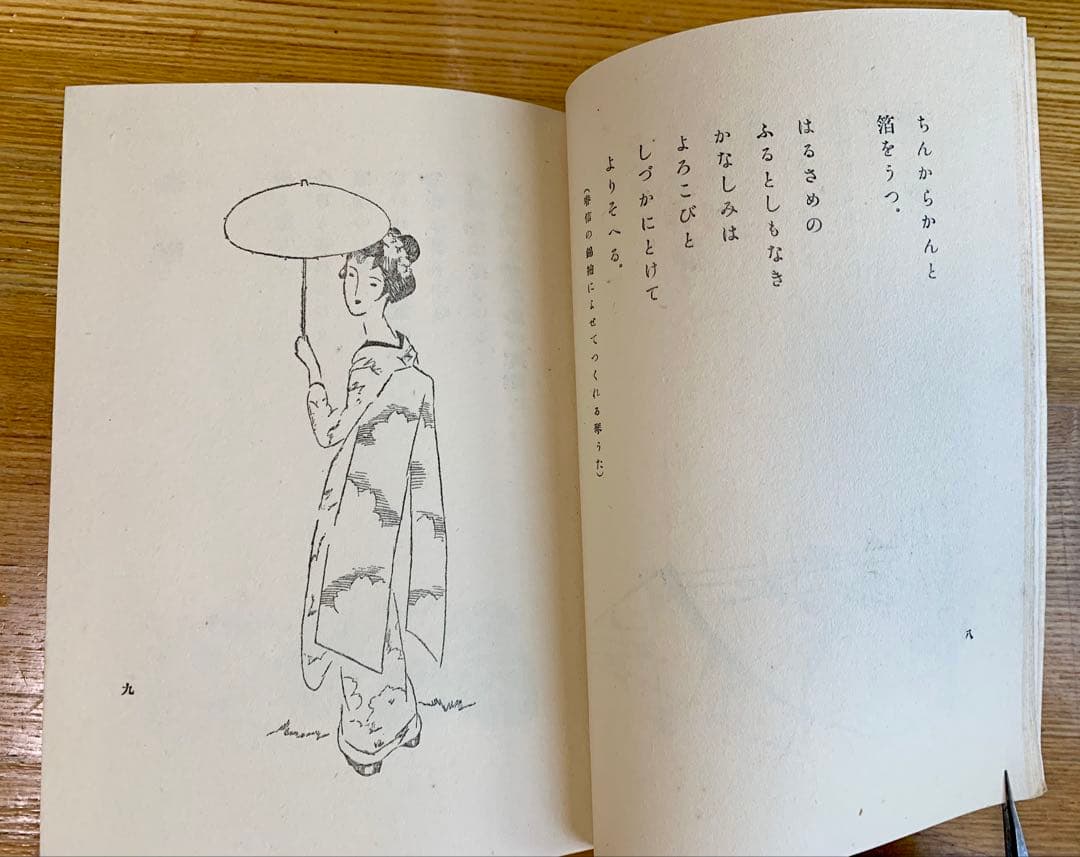 ちんからかんと
箔をうつ。
はるさめの
ふるとしもなき
かなしみは
よろこびと
しづかにとけて
よりそへる。
(春信の錦絵によせてつくれる琴うた)
八
九